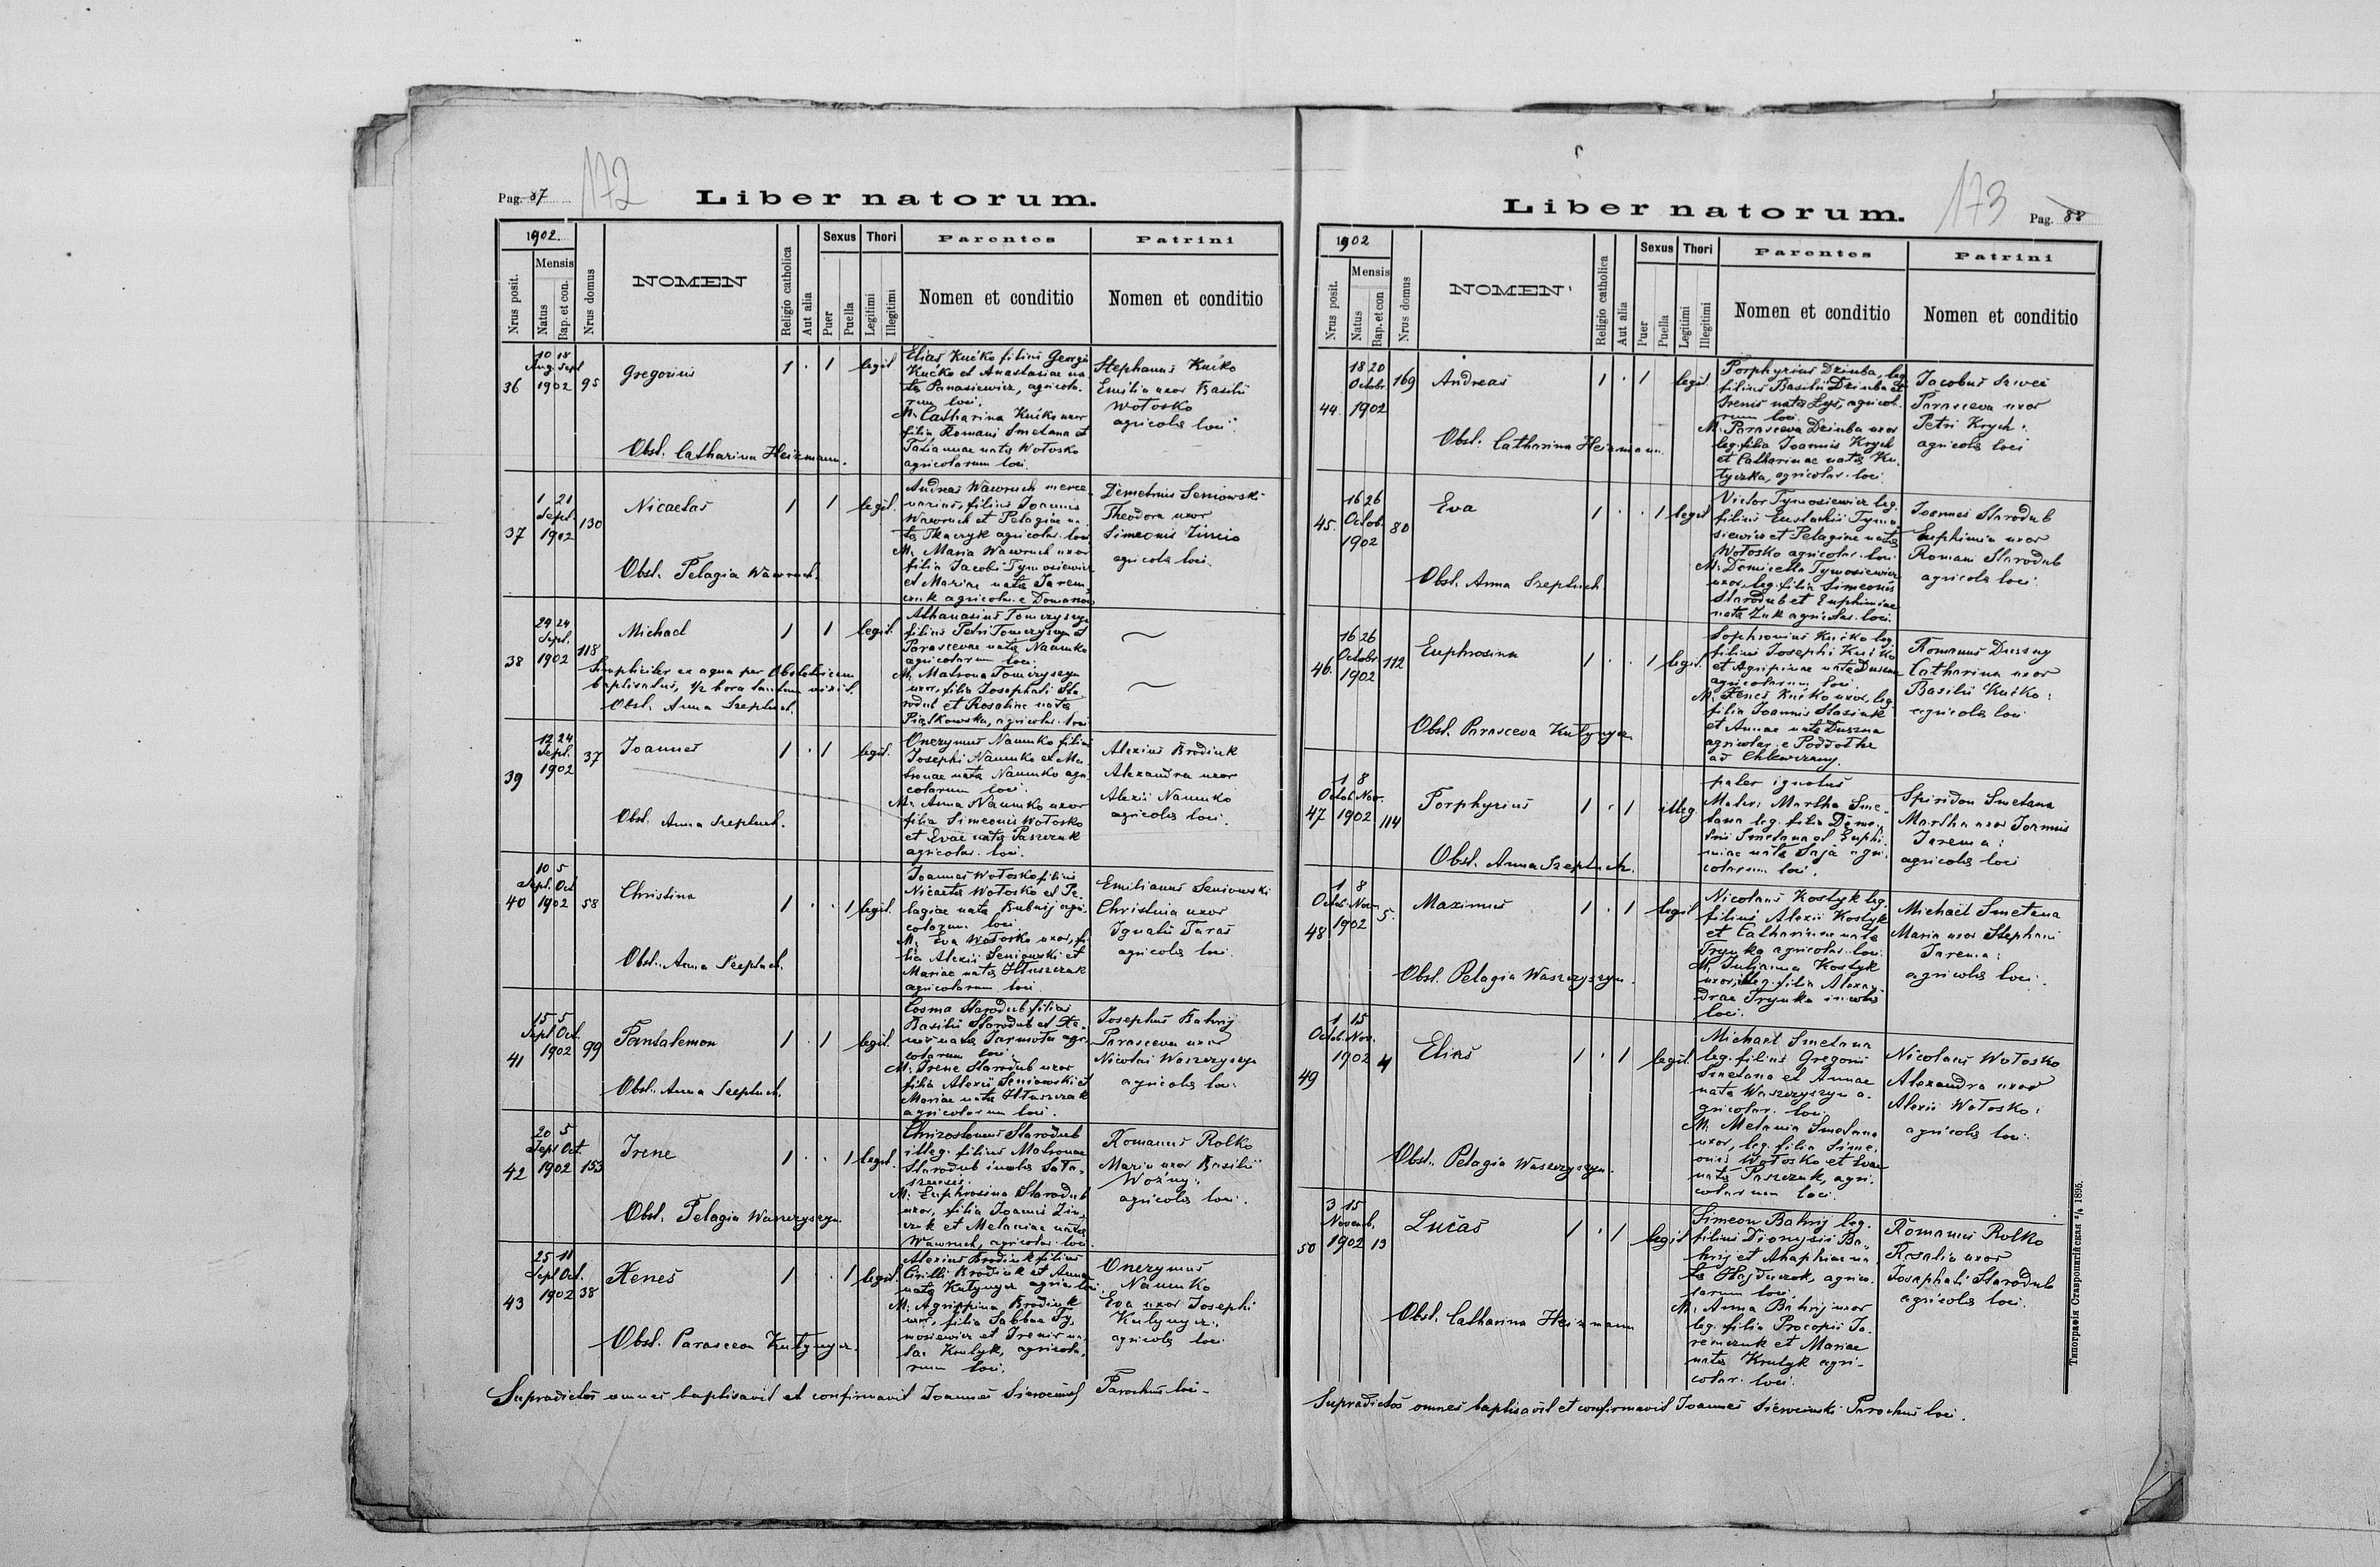 Pag. 87
172
Liber natorum.
1902.
Nrus posit.
Mensis
Natus
Bap. et con.
Nrus domus
NOMEN
Religio catholica
Aut alia
Sexus
Puer
Puella
Thori
Legitimi
Illegitimi
Parentes
Nomen et conditio
Patrini
Nomen et conditio
36
10 18
Aug. Sept
1902
95
Gregorius
1 . 1 legit
Elias Kućko filius Georgii
Kućko et Anastasiae na-
ta Panasiewicz, agricola-
rum loci.
M. Catharina Kućko uxor
filia Romani Smetana et
Tatiannae nata Wołosko
agricolarum loci.
Stephanus Kućko
Emilia uxor Basilii
Wołosko
agricolae loci.
Obst. Catharina Heizmann.
37
1 21
Sept.
1902
130
Nicaetas
1 1 legit.
Andreas Wawruch merce-
narius, filius Joannis
Wawruch et Pelagiae na-
ta Tkaczyk agricolar. loci
M. Maria Wawruch uxor
filia Jacobi Tymosiewicz
et Mariae nata Jarem-
czuk agricolar. e
Demetrius Seniowski
Theodora uxor
Simeonis
agricolae loci.
Obst. Pelagia Wawruch.
38
24 24
Sept.
1902
118
Michael
1 1 legit.
Simpliciter ex aqua per Obstetricem
baptisatus, 1/2 hora tantum vixit.
Obst. Anna Szepluch.
Athanasius Tomczyszyn
filius Petri Tomczyszyn et
Parascevae nata Naumko
agricolarum loci.
M. Matrona Tomczyszyn
uxor, filia Josephati Sta-
rodub et Rosaliae nata
Piątkowska, agricolar. loci
39
12 24
Sept.
1902
37
Joannes
1 . 1 legit.
Onezymus Naumko filius
Josephi Naumko et Ma-
tronae nata Naumko agri-
colarum loci.
M. Anna Naumko uxor
filia Simeonis Wołosko
et Evae nata Paszczak
agricolar. loci.
Alexius Brodiuk
Alexandra uxor
Alexii Naumko
agricolae loci.
Obst. Anna Szepluch.
40
10 5
Sept. Oct
1902
58
Christina
1 . . 1 legit.
Joannes Wołosko filius
Nicaeta Wołosko et Pe-
lagiae nata Bubnij agri-
colarum loci.
M. Eva Wołosko uxor, fi-
lia Alexii Seniowski et
Mariae nata Hłuszczak
agricolarum loci.
Emilianus Seniowski
Christina uxor
Ignatii Taras
agricolae loci.
Obst. Anna Szepluch.
41
15 5
Sept Oct.
1902
99
Pantalemon
1 . 1 legit.
Cosma Starodub filius
Basilii Starodub et Xe-
niae nata Jarmoła agri-
colarum loci.
M. Irene Starodub uxor
filia Alexii Seniowski et
Mariae nata Hłuszczak
agricolarum loci.
Josephus Bahrij
Parasceva uxor
Nicolai Waszczyszyn
agricolae loci.
Obst. Anna Szepluch.
42
20 5
Sept Oct.
1902
153
Irene
1 . . 1 legit.
Chrizostomus Starodub
illeg. filius Matronae
Starodub incola

M. Euphrosina Starodub
uxor, filia Joannis
et Melaniae nata
Wawruch, agricolar. loci.
Romanus Rolko
Maria uxor Basilii
Woźny.
agricolae loci.
Obst. Pelagia Waszczyszyn
43
25 11
Sept Oct.
1902
38
Xenes
1 . . 1 legit.
Alexius Brodiuk filius
Cirilli Brodiuk et Annae
nata Kułynycz agricolar loci.
M. Agrippina Brodiuk
uxor, filia Sabbae Ty-
mosiewicz et Irenis na-
tae Krulyk, agricola-
rum loci.
Onezymus
Naumko
Eva uxor Josephi
Kulynycz.
agricolae loci
Obst. Parasceva Kułynycz.
Supradictos omnes baptisavit et confirmavit Joannes Sierociński Parochus loci.
Liber natorum.
173
Pag. 88
1902
Nrus posit.
Mensis
Natus
Bap. et con
Nrus domus
NOMEN
Religio catholica
Aut alia
Sexus
Puer
Puella
Thori
Legitimi
Illegitimi
Parentes
Nomen et conditio
Patrini
Nomen et conditio
44
18 20
Octobr
1902
169
Andreas
1 . 1 legit.
Porphyrius Dziuba, leg.
filius Basilii Dziuba et
Irenis nata Łyś, agricol-
rum loci
M. Parasceva Dziuba uxor
leg. filia Joannis Krych
et Catharinae nata Ku-
tyczka, agricolar. loci.
Jacobus Szwec
Parasceva uxor
Petri Krych:
agricolae loci
Obst. Catharina Heizmann.
45.
16 26
Octob.
1902
80
Eva
1 . . 1 legit
Victor Tymosiewicz leg.
filius Eustachii Tymo-
siewicz et Pelagiae nata
Wołosko agricolar. loci.
M. Domicella Tymosiewicz
uxor, leg. filia Simeonis
Starodub et Euphimiae
nata Żuk agricolar. loci.
Joannes Starodub
Euphimia uxor
Romani Starodub
agricolae loci.
Obst. Anna Szepluch.
46.
16 26
Octobr
1902
112
Euphrosina
1 . . 1 legit.
Sophronius Kućko leg.
filius Josephi Kućko
et Agripinae nata Duszna
agricolarum loci.
M. Xenes Kućko uxor, leg.
filia Joannis Stasiuk
et Annae nata Duszna
agricolar. e
ad
Romanus Duszny
Catharina uxor
Basilii Kućko:
agricolae loci
Obst. Parasceva Kułynycz.
47
1 8
Octob. Nov.
1902
114
Porphyrius
1 . 1 illeg.
pater ignotus
Mater: Martha Sme-
tana leg. filia Deme-
trii Smetana et Euphi-
miae nata Saja agri-
colarum loci.
Spiridon Smetana
Martha uxor Joannis
Jarema:
agricolae loci
Obst. Anna Szepluch.
48
1 8
Octob. Nov
1902
5.
Maximus
1 . 1 legit
Nicolaus Kostyk leg.
filius Alexii Kostyk
et Catharinae nata
Trynka agricolar. loci.
M. Julianna Kostyk
uxor, illeg. filia Alexan-
drae Trynka incola
loci.
Michaël Smetana
Maria uxor Stephani
Jarema:
agricolae loci.
Obst. Pelagia Waszczyszyn.
49
1 15
Octob. Nov.
1902
4
Elias
1 . 1 legit.
Michael Smetana
leg. filius Gregorii
Smetana et Annae
nata Waszczyszyn a-
gricolar. loci.
M. Melania Smetana
uxor, leg. filia Sime-
onis Wołosko et Evae
nata Paszczak, agri-
colarum loci.
Nicolaus Wołosko
Alexandra uxor
Alexii Wołosko:
agricolae loci.
Obst. Pelagia Waszczyszyn.
50
3 15
Novemb.
1902
13
Lucas
1 . 1 legit
Simeon Bahrij leg.
filius Dionysii Ba-
hrij et Ahaphiae na-
ta Hajduczok, agrico-
larum loci.
M. Anna Bahrij uxor
leg. filia Procopii Ja-
remczuk et Mariae
nata Krulyk agri-
colar. loci.
Romanus Rolko
Rosalia uxor
Josaphati Starodub
agricolae loci.
Obst. Catharina Heizmann
Supradictos omnes baptisavit et confirmavit Joannes Sierociński Parochus loci.
Типографія Ставропигійская 1895.